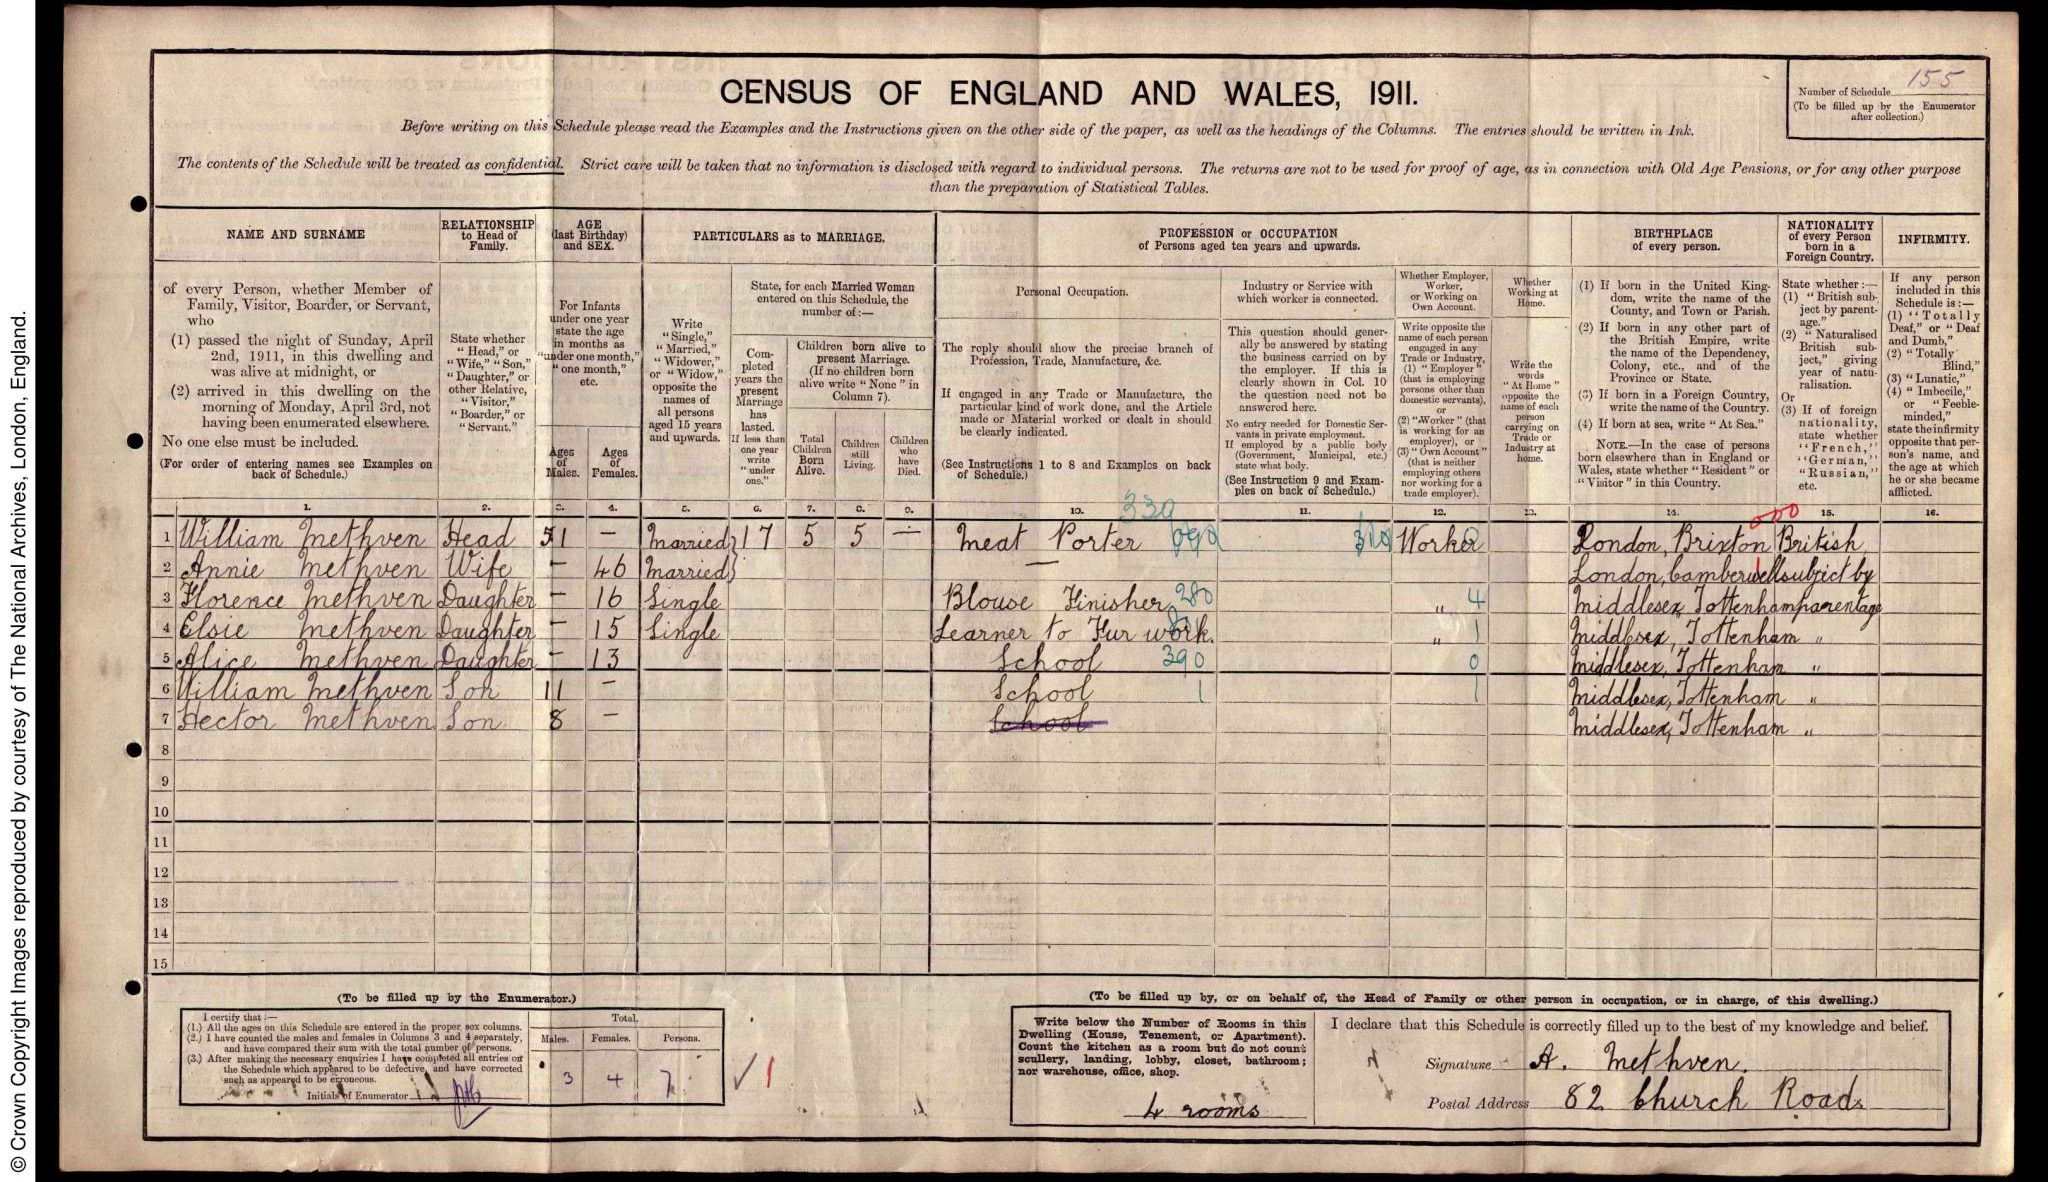 CENSUS OF ENGLAND AND WALES, 1911.
Number of Schedule 155
(To be filled up by the Enumerator
after collection.)
Before writing on this Schedule please read the Examples and the Instructions given on the other side of the paper, as well as the headings of the Columns. The entries should be written in Ink.
The contents of the Schedule will be treated as confidential. Strict care will be taken that no information is disclosed with regard to individual persons. The returns are not to be used for proof of age, as in connection with Old Age Pensions, or for any other purpose
than the preparation of Statistical Tables.
NAME AND SURNAME
of every Person, whether Member of
Family, Visitor, Boarder, or Servant,
who
(1) passed the night of Sunday, April
2nd, 1911, in this dwelling and
was alive at midnight, or
(2) arrived in this dwelling on the
morning of Monday, April 3rd, not
having been enumerated elsewhere.
No one else must be included.
(For order of entering names see Examples on
back of Schedule.)
RELATIONSHIP
to Head of
Family.
State whether
"Head," or
"Wife," "Son,"
"Daughter," or
other Relative,
"Visitor,"
"Boarder," or
"Servant."
AGE
(last Birthday)
and SEX.
For Infants
under one year
state the age
in months as
"under one month,"
"one month,"
etc.
Ages
of
Males.
Ages
of
Females.
PARTICULARS as to MARRIAGE.
Write
"Single,"
"Married,"
"Widower,"
or "Widow,"
opposite the
names of
all persons
aged 15 years
and upwards.
State, for each Married Woman
entered on this Schedule, the
number of:—
Com-
pleted
years the
present
Marriage
has
lasted.
If less than
one year
write
"under
one."
Children born alive to
present Marriage.
(If no children born
alive write "None" in
Column 7).
Total
Children
Born
Alive.
Children
still
Living.
Children
who
have
Died.
PROFESSION or OCCUPATION
of Persons aged ten years and upwards.
Personal Occupation.
The reply should show the precise branch of
Profession, Trade, Manufacture, &c.
If engaged in any Trade or Manufacture, the
particular kind of work done, and the Article
made or Material worked or dealt in should
be clearly indicated.
(See Instructions 1 to 8 and Examples on back
of Schedule.)
Industry or Service with
which worker is connected.
This question should gener-
ally be answered by stating
the business carried on by
the employer. If this is
clearly shown in Col. 10
the question need not be
answered here.
No entry needed for Domestic Ser-
vants in private employment.
If employed by a public body
(Government, Municipal, etc.)
state what body.
(See Instruction 9 and Exam-
ples on back of Schedule.)
Whether Employer,
Worker,
or Working on
Own Account.
Write opposite the
name of each person
engaged in any
Trade or Industry,
(1) "Employer"
(that is employing
persons other than
domestic servants),
or
(2) "Worker" (that
is working for an
employer), or
(3) "Own Account"
(that is neither
employing others
nor working for a
trade employer).
Whether
Working at
Home.
Write the
words
"At Home"
opposite the
name of each
person
carrying on
Trade or
Industry at
home.
BIRTHPLACE
of every person.
(1) If born in the United King-
dom, write the name of the
County, and Town or Parish.
(2) If born in any other part of
the British Empire, write
the name of the Dependency,
Colony, etc., and of the
Province or State.
(3) If born in a Foreign Country,
write the name of the Country.
(4) If born at sea, write "At Sea."
NOTE.—In the case of persons
born elsewhere than in England or
Wales, state whether "Resident" or
"Visitor" in this Country.
NATIONALITY
of every Person
born in a
Foreign Country.
State whether :—
(1) "British sub-
ject by parent-
age."
(2) "Naturalised
British sub-
ject," giving
year of natu-
ralisation.
Or
(3) If of foreign
nationality,
state whether
"French,"
"German,"
"Russian,"
etc.
INFIRMITY.
If any person
included in this
Schedule is:—
(1) "Totally
Deaf," or "Deaf
and Dumb,"
(2) "Totally
Blind,"
(3) "Lunatic,"
(4) "Imbecile,"
or "Feeble-
minded,"
state the infirmity
opposite that per-
son's name, and
the age at which
he or she became
afflicted.
1. 2. 3. 4. 5. 6. 7. 8. 9. 10. 11. 12. 13. 14. 15. 16.
339 000
1 William Methven Head 51 — Married 17 5 5 — Meat Porter Worker London, Brixton British
2 Annie Methven Wife — 46 Married — London, Camberwell subject by
3 Florence Methven Daughter — 16 Single Blouse Finisher 280 " 4 Middlesex, Tottenham parentage
4 Elsie Methven Daughter — 15 Single Learner to Fur work. " 1 Middlesex, Tottenham "
5 Alice Methven Daughter — 13 School 390 0 Middlesex, Tottenham "
6 William Methven Son 11 — School 1 1 Middlesex, Tottenham "
7 Hector Methven Son 8 — School Middlesex, Tottenham "
8
9
10
11
12
13
14
15
(To be filled up by the Enumerator.)
I certify that :—
(1.) All the ages on this Schedule are entered in the proper sex columns.
(2.) I have counted the males and females in Columns 3 and 4 separately,
and have compared their sum with the total number of persons.
(3.) After making the necessary enquiries I have completed all entries on
the Schedule which appeared to be defective, and have corrected
such as appeared to be erroneous.
Initials of Enumerator
Total.
Males. Females. Persons.
3 4 7
✓ 1
(To be filled up by, or on behalf of, the Head of Family or other person in occupation, or in charge, of this dwelling.)
Write below the Number of Rooms in this
Dwelling (House, Tenement, or Apartment).
Count the kitchen as a room but do not count
scullery, landing, lobby, closet, bathroom;
nor warehouse, office, shop.
4 rooms
I declare that this Schedule is correctly filled up to the best of my knowledge and belief.
Signature A. Methven.
Postal Address 82 Church Road
© Crown Copyright Images reproduced by courtesy of The National Archives, London, England.